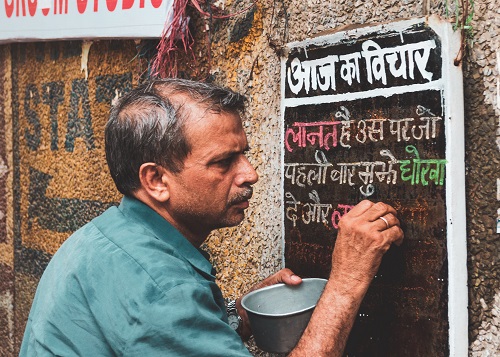 STUDIO
STAT
आज का विचार
लानत है उस पर जो
पहली बार मुझे धोखा
दे और ल